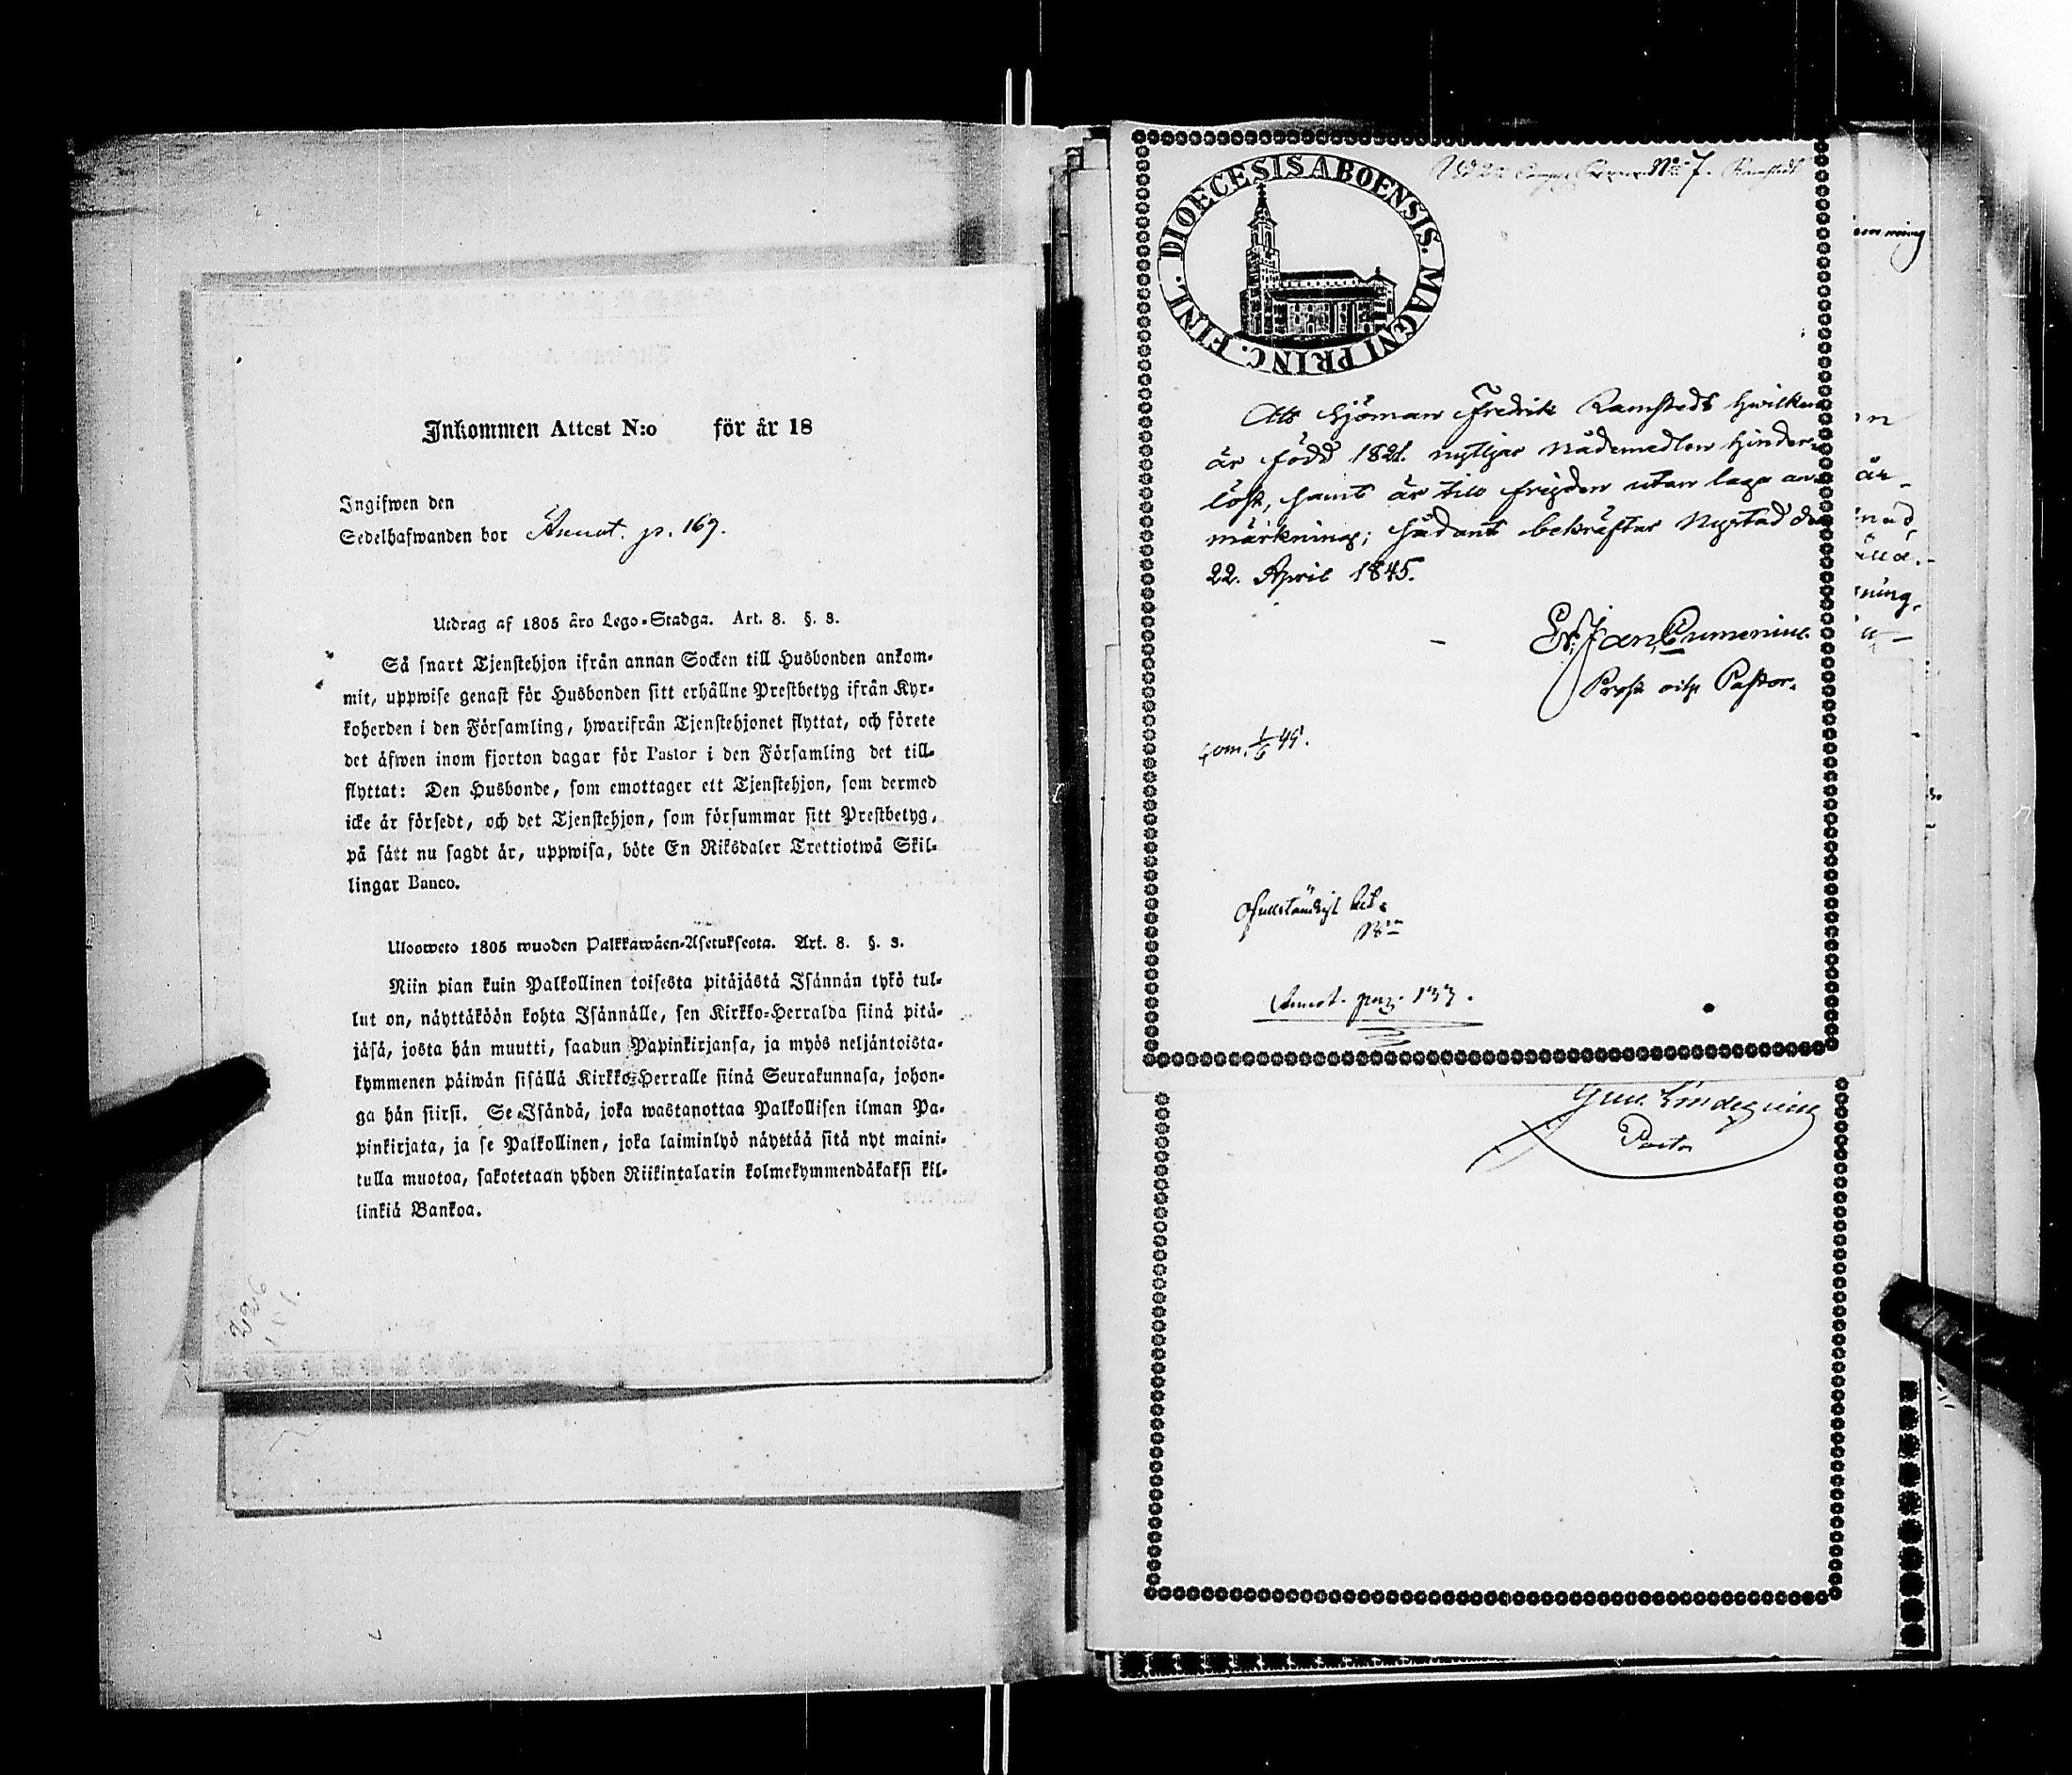 Inkommen Attest N:o för år 18
Ingifwen den
Sedelhafwanden bor Annot. p. 169.
Utdrag af 1805 års Lego-Stadga. Art. 8. §. 3.
Så snart Tjenstehjon ifrån annan Socken till Husbonden ankom-
mit, uppwise genast för Husbonden sitt erhållne Prestbetyg ifrån Kyr-
koherden i den Församling, hwarifrån Tjenstehjonet flyttat, och förete
det äfwen inom fjorton dagar för Pastor i den Församling det till-
flyttat: Den Husbonde, som emottager ett Tjenstehjon, som dermed
icke är försedt, och det Tjenstehjon, som försummar sitt Prestbetyg,
på sätt nu sagdt är, uppwisa, böte En Riksdaler Trettiotwå Skil-
lingar Banco.
Ulosweto 1805 wuoden Palkkawäen-Asetuksesta. Art. 8. §. 3.
Niin pian kuin Palkollinen toisesta pitäjästä Isännän tykö tul-
lut on, näyttäköön kohta Isännälle, sen Kirkko-Herralda siinä pitä-
jäsä, josta hän muutti, saadun Papinkirjansa, ja myös neljäntoista-
kymmenen päiwän sisällä Kirkko-Herralle siinä Seurakunnasa, johon-
ga hän siirsi. Se Isändä, joka wastanottaa Palkollisen ilman Pa-
pinkirjata, ja se Palkollinen, joka laiminlyö näyttää sitä nyt maini-
tulla muotoa, sakotetaan yhden Riikintalarin kolmekymmendäkaksi kil-
linkiä Bankoa.
226
DIOECESIS ABOENSIS. MAGNI PRINC. FINL.
No 7. Ramstedt
Att Sjöman Fredrik Ramstedt hwilken
är född 1821. nyttjar nådemedlen hinder-
löst, samt är till frejden utan laga an-
märkning; sådant bekräftar Nystad den
22. April 1845.
Er. Joan. Cumenius.
Prost och Pastor.
Fullständigt
Annot. pag. 133.
Lindegren
Pastor